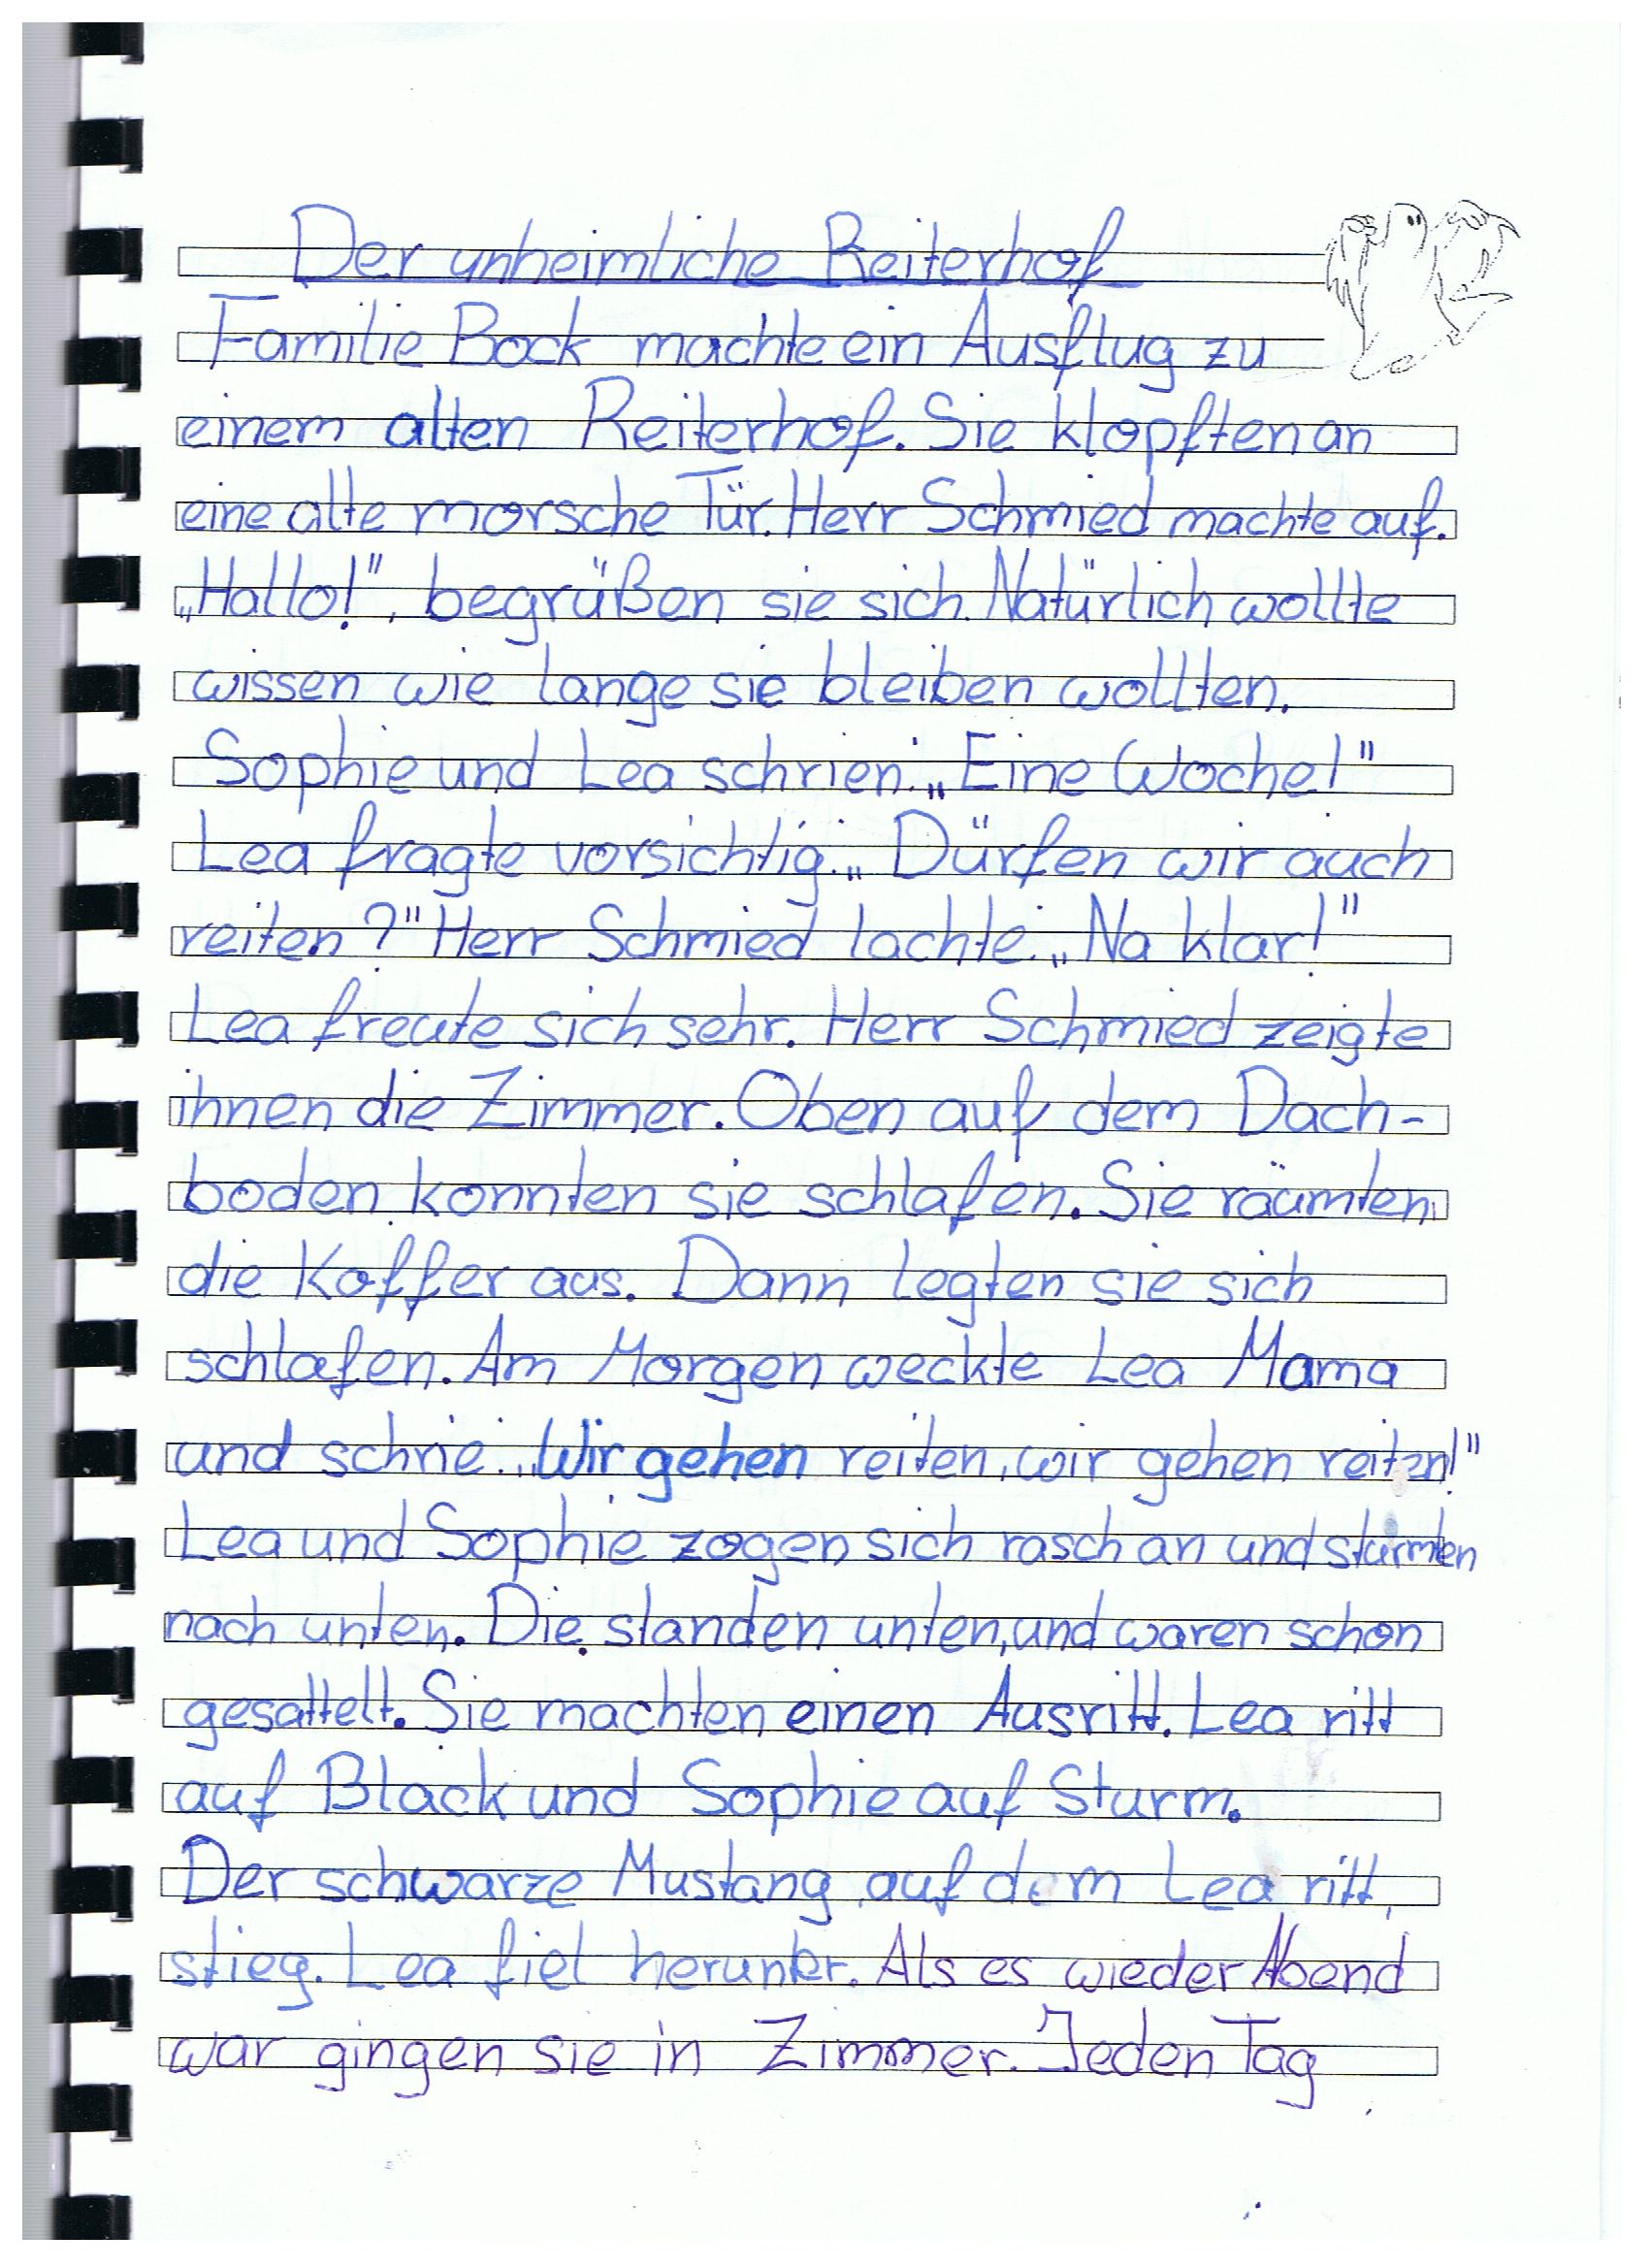 Der unheimliche Reiterhof
Familie Bock machte ein Ausflug zu
einem alten Reiterhof. Sie klopften an
eine alte morsche Tür. Herr Schmied machte auf.
„Hallo!", begrüßen sie sich. Natürlich wollte
wissen wie lange sie bleiben wollten.
Sophie und Lea schrien: „Eine Woche!"
Lea fragte vorsichtig: „Dürfen wir auch
reiten?" Herr Schmied lachte: „Na klar!"
Lea freute sich sehr. Herr Schmied zeigte
ihnen die Zimmer. Oben auf dem Dach-
boden konnten sie schlafen. Sie räumten
die Koffer aus. Dann legten sie sich
schlafen. Am Morgen weckte Lea Mama
und schrie: „Wir gehen reiten, wir gehen reiten!"
Lea und Sophie zogen sich rasch an und stürmten
nach unten. Die standen unten, und waren schon
gesattelt. Sie machten einen Ausritt. Lea ritt
auf Black und Sophie auf Sturm.
Der schwarze Mustang, auf dem Lea ritt,
stieg. Lea fiel herunter. Als es wieder Abend
war gingen sie in Zimmer. Jeden Tag